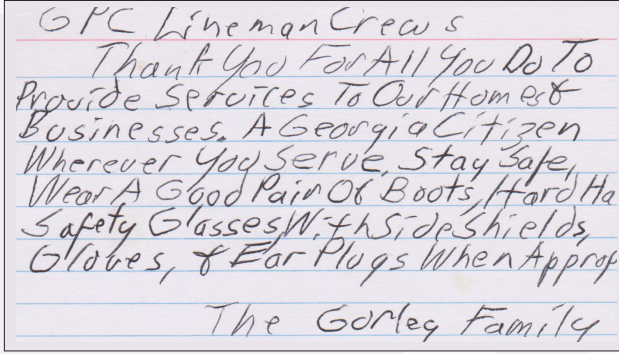 GPC Lineman Crews
Thank You For All You Do To
Provide Services To Our Homes &
Businesses. A Georgia Citizen
Wherever You Serve, Stay Safe,
Wear A Good Pair Of Boots, Hard Ha
Safety Glasses With Side Shields,
Gloves, & Ear Plugs When Approp
The Family